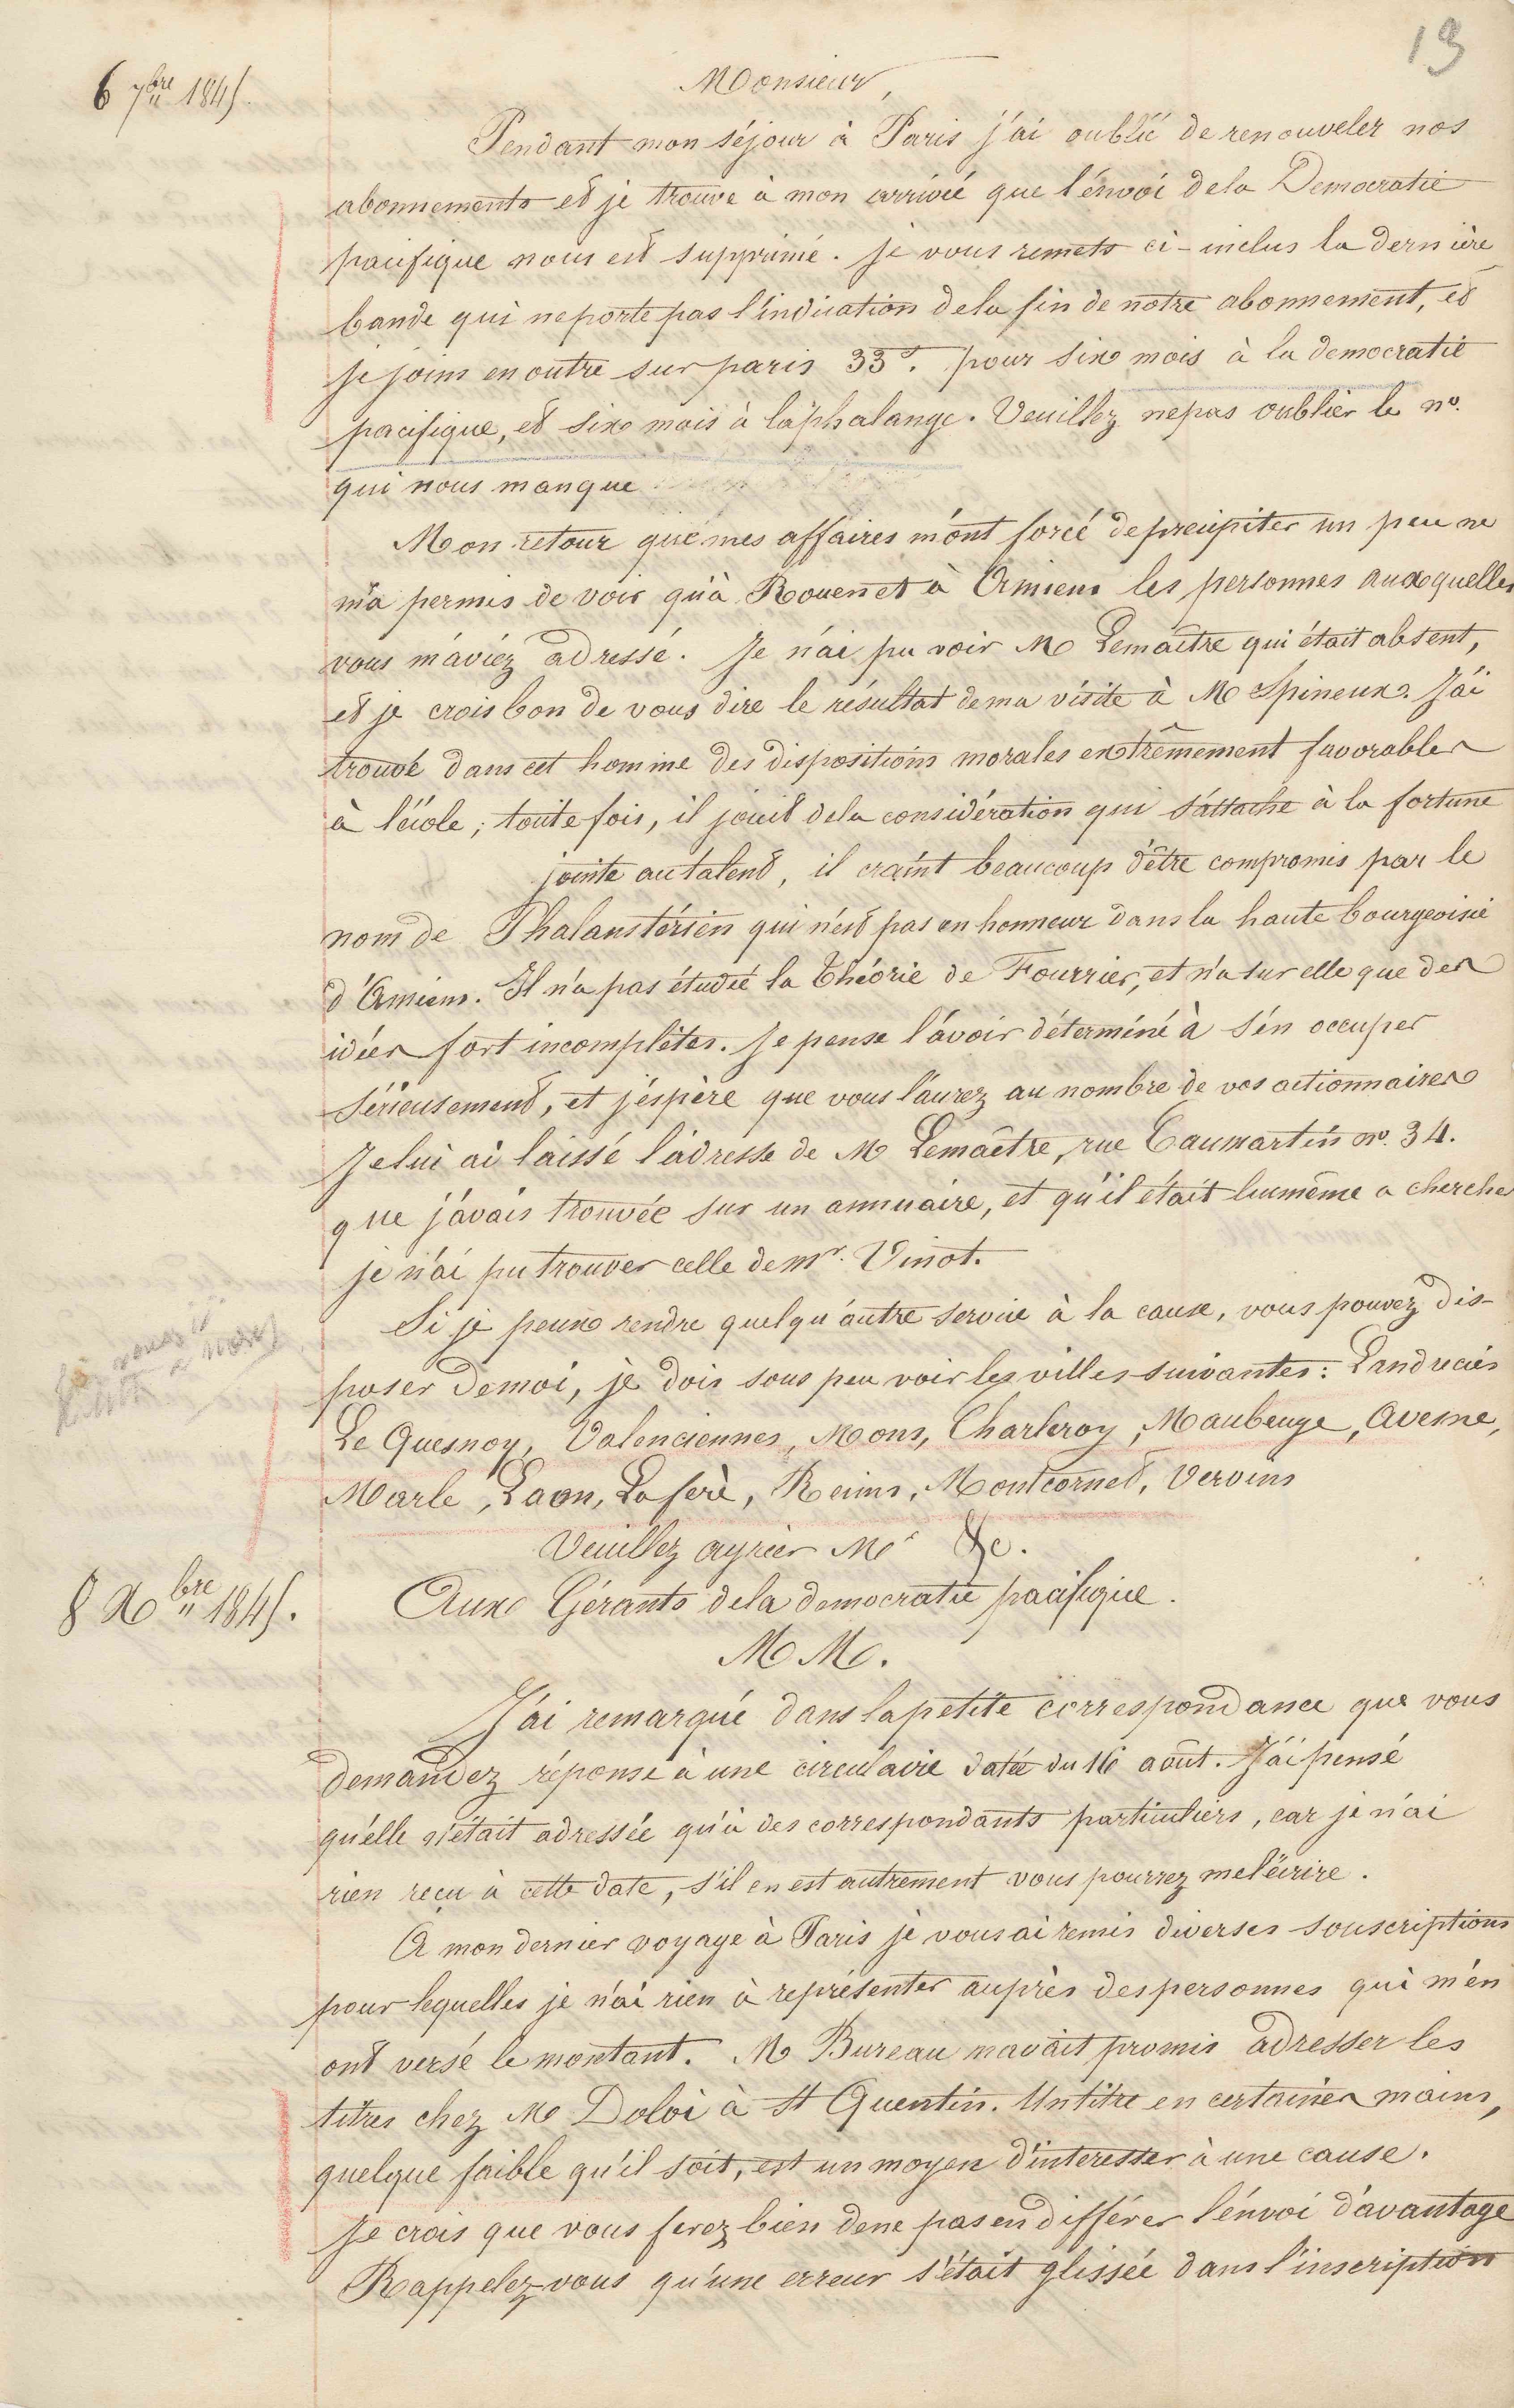 13
6 7bre 1845.
Monsieur,
Pendant mon séjour à Paris j'ai oublié de renouveler nos
abonnements et je trouve à mon arrivée que l'envoi de la Democratie
pacifique nous est supprimé. je vous remets ci-inclus la dernière
bande qui ne porte pas l'indication de la fin de notre abonnement, et
je joins en outre sur paris 33f. pour six mois à la democratie
pacifique, et six mois à la phalange. Veuillez ne pas oublier le no.
qui nous manque
Mon retour que mes affaires m'ont forcé de precipiter un peu ne
m'a permis de voir qu'à Rouen et à Amiens les personnes auxquelles
vous m'aviez adressé. Je n'ai pu voir M Lemaître qui était absent,
et je crois bon de vous dire le résultat de ma visite à M Spineux. J'ai
trouvé dans cet homme des dispositions morales extrêmement favorables
à l'école; toutefois, il jouit de la considération qui s'attache à la fortune
jointe au talent, il craint beaucoup d'être compromis par le
nom de Phalanstérien qui n'est pas en honneur dans la haute bourgeoisie
d'Amiens. Il n'a pas étudié la théorie de Fourrier, et n'a sur elle que des
idées fort incomplètes. Je pense l'avoir déterminé à s'en occuper
sérieusement, et j'espère que vous l'aurez au nombre de vos actionnaires
Je lui ai laissé l'adresse de M Lemaître, rue Caumartin no. 34.
que j'avais trouvée sur un annuaire, et qu'il était lui même a cherche
je n'ai pu trouver celle de mr. Vinot.
Si je peux rendre quelqu'autre service à la cause, vous pouvez dis-
poser de moi, je dois sous peu voir les villes suivantes: Landrecies
Le Quesnoy, Valenciennes, Mons, Charleroy, Maubeuge, Avesne,
Marle, Laon, Lafère, Reims, Montcornet, Vervins
Veuillez agréer Mr &c.
8 Xbre 1845.
Aux Gérants de la democratie pacifique.
M M.
J'ai remarqué dans la petite correspondance que vous
demandez réponse à une circulaire datée du 16 août. J'ai pensé
qu'elle n'était adressée qu'à des correspondants particuliers, car je n'ai
rien reçu à cette date, s'il en est autrement vous pourrez me l'écrire.
A mon dernier voyage à Paris je vous ai remis diverses souscriptions
pour lequelles je n'ai rien à représenter auprès des personnes qui m'en
ont versé le montant. M Bureau m'avait promis adresser les
titres chez M Doloi à St Quentin. Un titre en certaines mains,
quelque faible qu'il soit, est un moyen d'interesser à une cause.
Je crois que vous ferez bien de ne pas en différer l'envoi d'avantage
Rappelez-vous qu'une erreur s'était glissée dans l'inscription